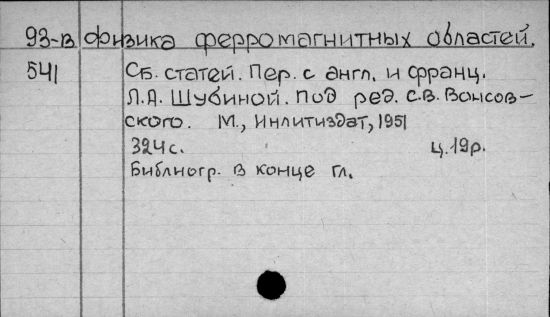 93-в Физика ферромагнитных областей.
541 Сб. статей. Пер. с англ. и франц.
Л.А. Шубиной. Под ред. С.В. Вонсов-
ского. М., Инлитиздат, 1951
324 с. ц. 19р.
Библиогр. в конце гл.